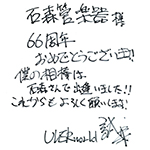 石森管楽器 様
66周年
おめでとうございます!
僕の相棒は
石森さんで出逢いました!!
これからもよろしく願います!
UVERworld 誠果